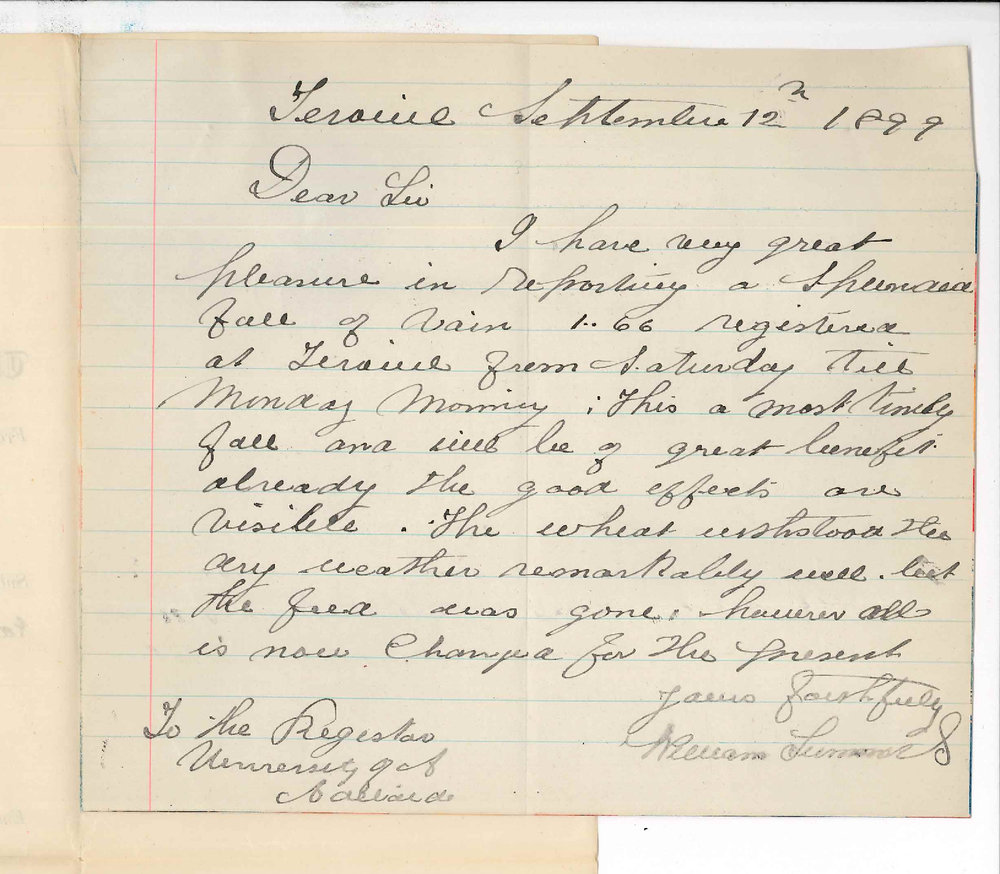 Terowie September 12th 1899
Dear Sir
I have very great
pleasure in reporting a splendid
fall of rain 1..66 registered
at Terowie from Saturday till
Monday Morning ; this a most timely
fall and will be of great benefit
already the good effects are
visible . The wheat withstood the
dry weather remarkably well . but
the feed was gone ; however all
is now Changed for the present
Yours faithfully
William
To the Registar
University of A
Adelaide